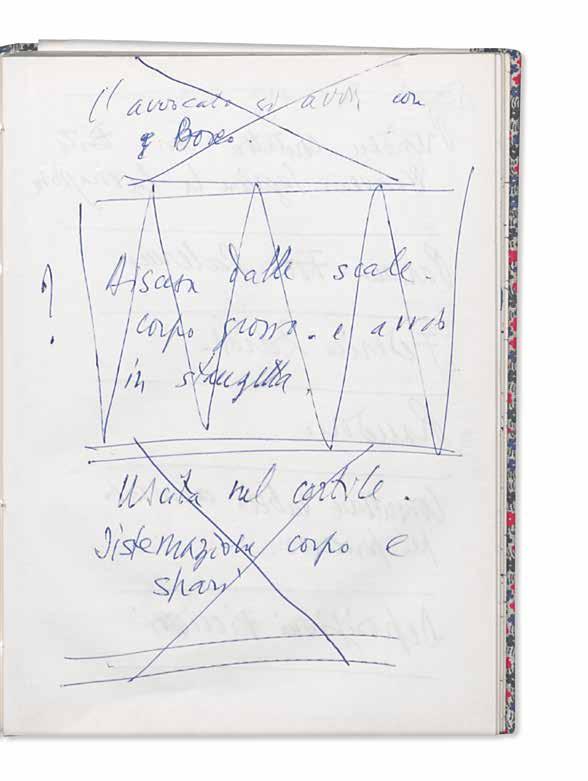 Il avvocato si avvi con
Boss
?
Discesa dalle scale.
corpo grosso. e arrivo
in
Uscita nel cortile.
Sistemazione corpo e
spari